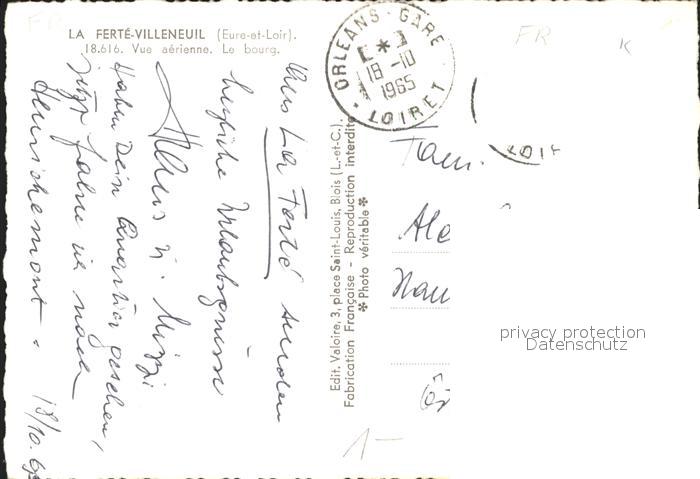 LA FERTÉ-VILLENEUIL (Eure-et-Loir).
18.616. Vue aérienne. Le bourg.
Aus La Ferté senden
herzliche Urlaubsgrüsse
Klaus u. Mizzi
Haben Dein Quartier gesehen,
jetzt fahre ich nach
Henrichemont.
18/10.65
Edit. Valoire, 3, place Saint-Louis, Blois (L.-et-C.).
Fabrication Française - Reproduction interdite
✻ Photo véritable ✻
ORLEANS-GARE
18-10
1965
LOIRET
LOIR
Fam.
Ale
1-
FR
FR
K
privacy protection
Datenschutz